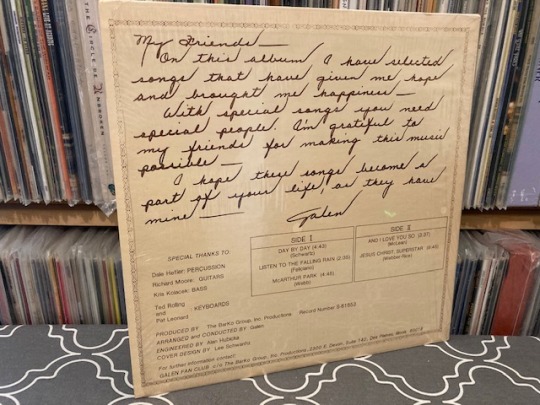 My Friends—
On this album I have selected
songs that have given me hope
and brought me happiness—
With special songs you need
special people. I'm grateful to
my friends for making this music
possible—
I hope these songs become a
part of your life, as they have
mine—
Galen
SPECIAL THANKS TO:
Dale Hefter: PERCUSSION
Richard Moore: GUITARS
Kris Kolacek: BASS
Ted Rolling
and : KEYBOARDS
Pat Leonard
SIDE I
DAY BY DAY (4:43)
(Schwartz)
LISTEN TO THE FALLING RAIN (2:35)
(Feliciano)
McARTHUR PARK (4:45)
(Webb)
SIDE II
AND I LOVE YOU SO (3:37)
(McLean)
JESUS CHRIST, SUPERSTAR
(Webber-Rice)
PRODUCED BY The Barko Group, Inc. Productions Record Number
ARRANGED and CONDUCTED BY Galen
ENGINEERED BY Alan
COVER DESIGN BY Lee Schwartz
For further information contact:
GALEN FAN CLUB c/o The Barko Group, Inc. Productions, Devon, Suite 142, Des Plaines, Illinois
THE CIRCLE BE UNBROKEN